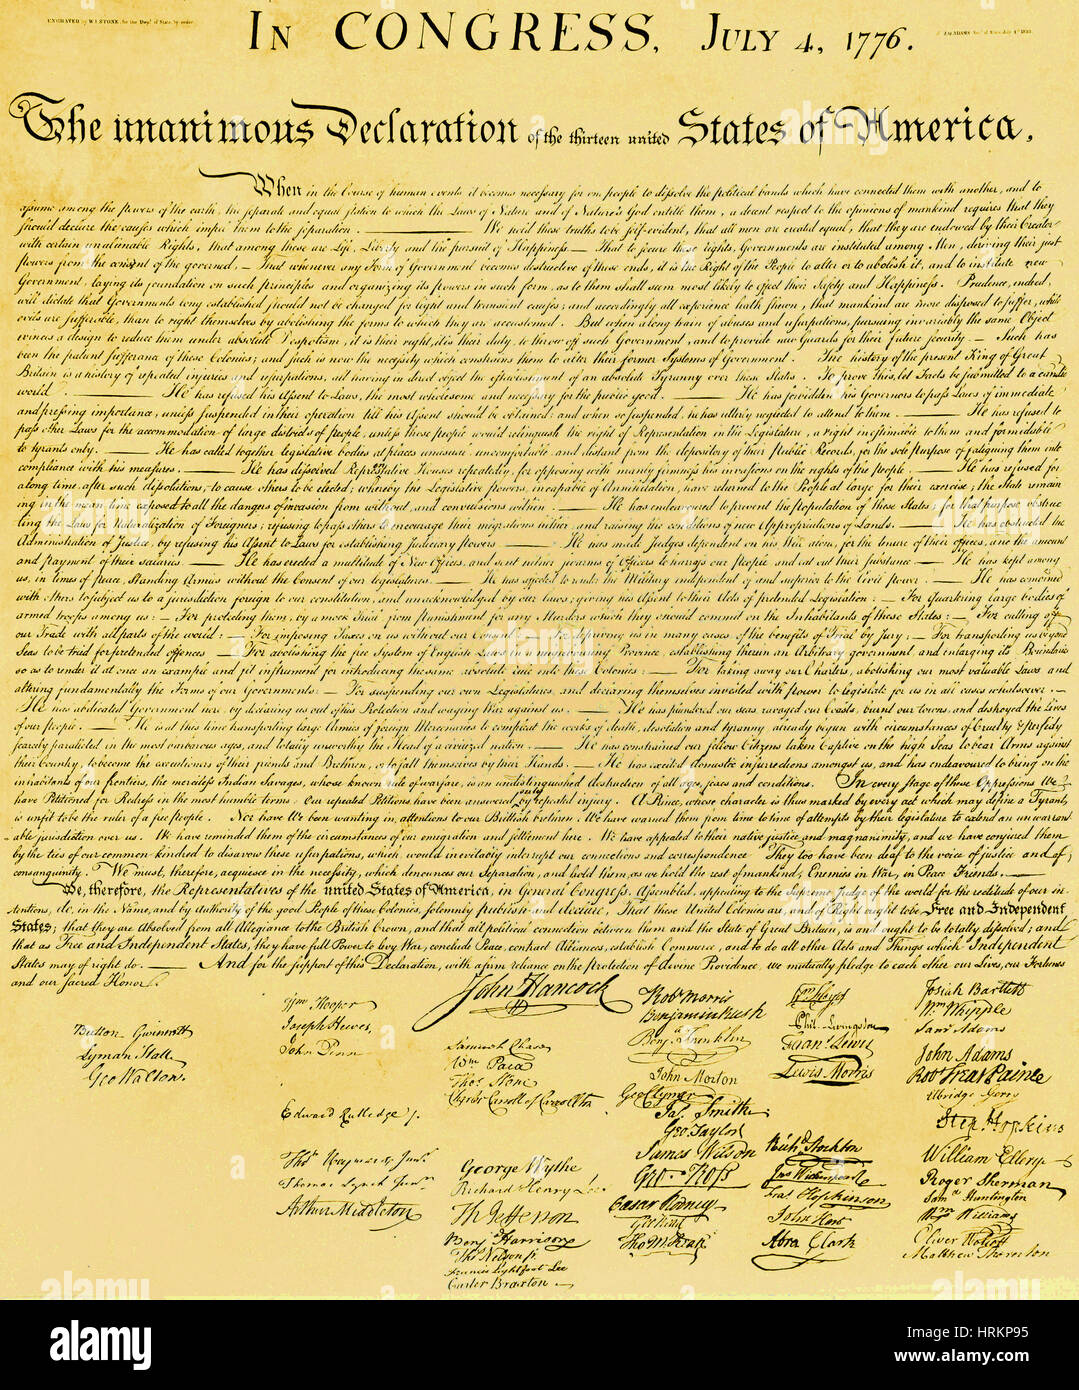 ENGRAVED by W.I. STONE, for the Dept. of State, by order
IN CONGRESS, JULY 4, 1776.
The unanimous Declaration of the thirteen united States of America,
When in the Course of human events it becomes necessary for one people to dissolve the political bands which have connected them with another, and to
assume among the powers of the earth, the separate and equal station to which the Laws of Nature and of Nature's God entitle them, a decent respect to the opinions of mankind requires that they
should declare the causes which impel them to the separation. — We hold these truths to be self-evident, that all men are created equal, that they are endowed by their Creator
with certain unalienable Rights, that among these are Life, Liberty and the pursuit of Happiness — That to secure these rights, Governments are instituted among Men, deriving their just
powers from the consent of the governed, — That whenever any Form of Government becomes destructive of these ends, it is the Right of the People to alter or to abolish it, and to institute new
Government, laying its foundation on such principles and organizing its powers in such form, as to them shall seem most likely to effect their Safety and Happiness. Prudence, indeed,
will dictate that Governments long established should not be changed for light and transient causes; and accordingly all experience hath shewn, that mankind are more disposed to suffer, while
evils are sufferable, than to right themselves by abolishing the forms to which they are accustomed. But when a long train of abuses and usurpations, pursuing invariably the same Object
evinces a design to reduce them under absolute Despotism, it is their right, it is their duty, to throw off such Government, and to provide new Guards for their future security. — Such has
been the patient sufferance of these Colonies; and such is now the necessity which constrains them to alter their former Systems of Government. The history of the present King of Great
Britain is a history of repeated injuries and usurpations, all having in direct object the establishment of an absolute Tyranny over these States. To prove this, let Facts be submitted to a candid
world. — He has refused his Assent to Laws, the most wholesome and necessary for the public good. — He has forbidden his Governors to pass Laws of immediate
and pressing importance, unless suspended in their operation till his Assent should be obtained; and when so suspended, he has utterly neglected to attend to them. — He has refused to
pass other Laws for the accommodation of large districts of people, unless those people would relinquish the right of Representation in the Legislature, a right inestimable to them and formidable
to tyrants only. — He has called together legislative bodies at places unusual, uncomfortable, and distant from the depository of their Public Records, for the sole purpose of fatiguing them into
compliance with his measures. — He has dissolved Representative Houses repeatedly, for opposing with manly firmness his invasions on the rights of the people. — He has refused for
a long time, after such dissolutions, to cause others to be elected; whereby the Legislative powers, incapable of Annihilation, have returned to the People at large for their exercise; the State remain
ing in the mean time exposed to all the dangers of invasion from without, and convulsions within. — He has endeavoured to prevent the population of these States; for that purpose obstruc
ting the Laws for Naturalization of Foreigners; refusing to pass others to encourage their migrations hither, and raising the conditions of new Appropriations of Lands. — He has obstructed the
Administration of Justice, by refusing his Assent to Laws for establishing Judiciary powers. — He has made Judges dependent on his Will alone, for the tenure of their offices, and the amount
and payment of their salaries. — He has erected a multitude of New Offices, and sent hither swarms of Officers to harrass our people, and eat out their substance. — He has kept among
us, in times of peace, Standing Armies without the Consent of our legislatures. — He has affected to render the Military independent of and superior to the Civil power. — He has combined
with others to subject us to a jurisdiction foreign to our constitution, and unacknowledged by our laws; giving his Assent to their Acts of pretended Legislation: — For Quartering large bodies of
armed troops among us: — For protecting them, by a mock Trial, from punishment for any Murders which they should commit on the Inhabitants of these States: — For cutting off
our Trade with all parts of the world: — For imposing Taxes on us without our Consent: — For depriving us in many cases, of the benefits of Trial by Jury: — For transporting us beyond
Seas to be tried for pretended offences — For abolishing the free System of English Laws in a neighbouring Province, establishing therein an Arbitrary government, and enlarging its Boundaries
so as to render it at once an example and fit instrument for introducing the same absolute rule into these Colonies: — For taking away our Charters, abolishing our most valuable Laws and
altering fundamentally the Forms of our Governments: — For suspending our own Legislatures, and declaring themselves invested with power to legislate for us in all cases whatsoever. —
He has abdicated Government here, by declaring us out of his Protection and waging War against us. — He has plundered our seas, ravaged our Coasts, burnt our towns, and destroyed the Lives
of our people. — He is at this time transporting large Armies of foreign Mercenaries to compleat the works of death, desolation and tyranny, already begun with circumstances of Cruelty & perfidy
scarcely paralleled in the most barbarous ages, and totally unworthy the Head of a civilized nation. — He has constrained our fellow Citizens taken Captive on the high Seas to bear Arms against
their Country, to become the executioners of their friends and Brethren, or to fall themselves by their Hands. — He has excited domestic insurrections amongst us, and has endeavoured to bring on the
inhabitants of our frontiers, the merciless Indian Savages, whose known rule of warfare, is an undistinguished destruction of all ages, sexes and conditions. In every stage of these Oppressions We
have Petitioned for Redress in the most humble terms: Our repeated Petitions have been answered only by repeated injury. A Prince, whose character is thus marked by every act which may define a Tyrant,
is unfit to be the ruler of a free people. Nor have We been wanting in attentions to our Brittish brethren. We have warned them from time to time of attempts by their legislature to extend an unwarrant
able jurisdiction over us. We have reminded them of the circumstances of our emigration and settlement here. We have appealed to their native justice and magnanimity, and we have conjured them
by the ties of our common kindred to disavow these usurpations, which, would inevitably interrupt our connections and correspondence They too have been deaf to the voice of justice and of
consanguinity. We must, therefore, acquiesce in the necessity, which denounces our Separation, and hold them, as we hold the rest of mankind, Enemies in War, in Peace Friends. —
We, therefore, the Representatives of the united States of America, in General Congress, Assembled, appealing to the Supreme Judge of the world for the rectitude of our in
tentions, do, in the Name, and by Authority of the good People of these Colonies, solemnly publish and declare, That these United Colonies are, and of Right ought to be Free and Independent
States; that they are Absolved from all Allegiance to the British Crown, and that all political connection between them and the State of Great Britain, is and ought to be totally dissolved; and
that as Free and Independent States, they have full Power to levy War, conclude Peace, contract Alliances, establish Commerce, and to do all other Acts and Things which Independent
States may of right do. — And for the support of this Declaration, with a firm reliance on the protection of divine Providence, we mutually pledge to each other our Lives, our Fortunes
and our sacred Honor.
Button Gwinnett
Lyman Hall
Geo Walton.
Wm Hooper
Joseph Hewes,
John Penn
Edward Rutledge /.
Thos Heyward Junr.
Thomas Lynch Junr.
Arthur Middleton
John Hancock
Samuel Chase
Wm Paca
Thos Stone
Charles Carroll of Carrollton
George Wythe
Richard Henry Lee
Th Jefferson
Benj Harrison
Thos Nelson jr
Francis Lightfoot Lee
Carter Braxton
Robt Morris
Benjamin Rush
Benj Franklin
John Morton
Geo Clymer
Jas Smith
Geo Taylor
James Wilson
Geo Ross
Caesar Rodney
Geo Read
Tho M:Kean
Wm Floyd
Phil. Livingston
Frans Lewis
Lewis Morris
Richd Stockton
Jno Witherspoon
Fras Hopkinson
John Hart
Abra Clark
Josiah Bartlett
Wm Whipple
Saml Adams
John Adams
Robt Treat Paine
Elbridge Gerry
Step Hopkins
William Ellery
Roger Sherman
Saml Huntington
Wm Williams
Oliver Wolcott
Matthew Thornton
alamy
Image ID: HRKP95
www.alamy.com